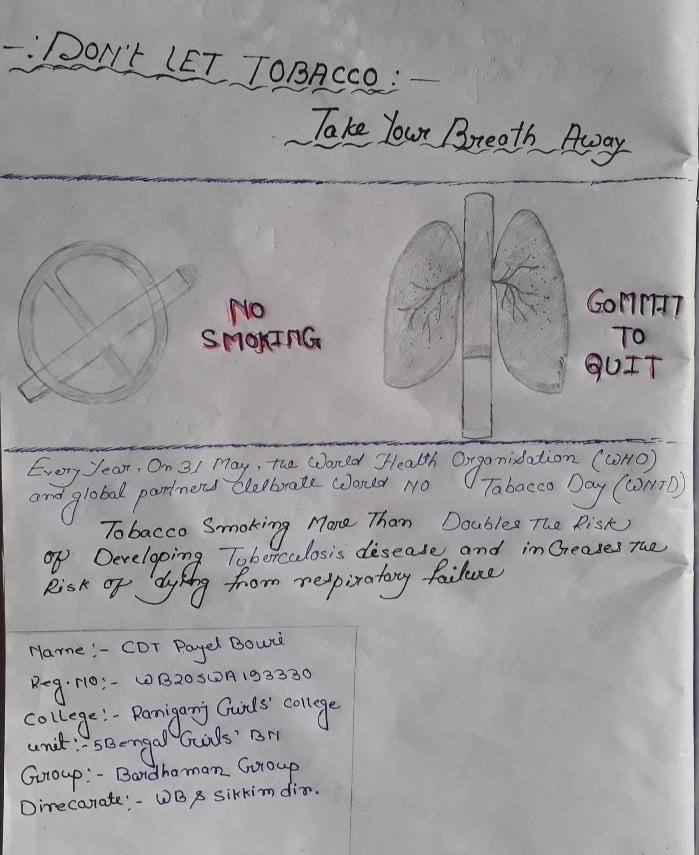 -: DON'T LET TOBACCO :-
Take Your Breath Away
NO
SMOKING
COMMIT
TO
QUIT
Every Year, On 31 May, the World Health Organisation (WHO)
and global partners Clelbrate World NO Tabacco Day (WNTD)
Tobacco Smoking More Than Doubles The Risk
of Developing Tuberculosis disease and increases The
Risk of dying from respiratory failure
Name:- CDT Payel Bouri
Reg.NO:- WB20SWA193330
College:- Raniganj Girls' college
unit:- 5Bengal Girls' BN
Group:- Bardhaman Group
Direcarate:- WB & Sikkim dir.